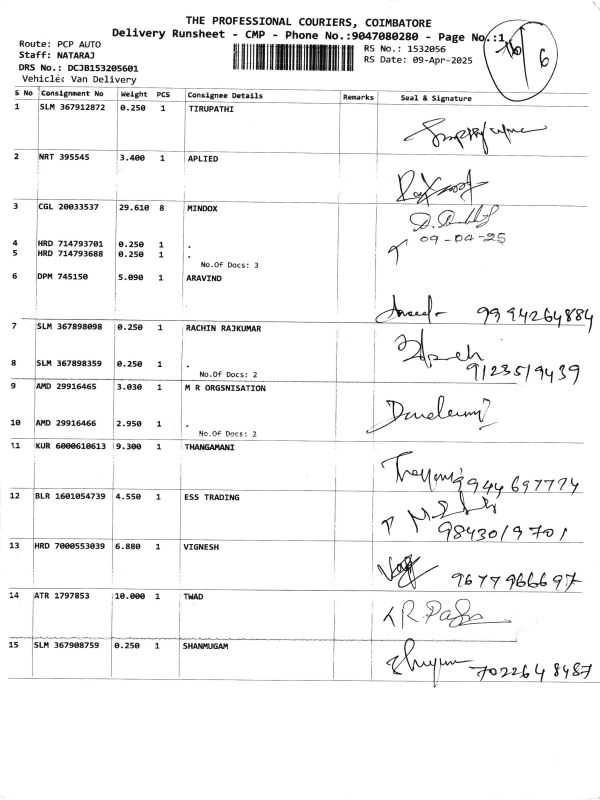 THE PROFESSIONAL COURIERS, COIMBATORE
Delivery Runsheet - CMP - Phone No.:9047080280 - Page No.:1
Route: PCP AUTO
Staff: NATARAJ
DRS No.: DCJB153205601
Vehicle: Van Delivery
RS No.: 1532056
RS Date: 09-Apr-2025
6
S No Consignment No Weight PCS Consignee Details Remarks Seal & Signature
1 SLM 367912872 0.250 1 TIRUPATHI
2 NRT 395545 3.400 1 APLIED
3 CGL 20033537 29.610 8 MINDOX
09-04-25
4 HRD 714793701 0.250 1 .
5 HRD 714793688 0.250 1 .
No.Of Docs: 3
6 DPM 745150 5.090 1 ARAVIND
9994264884
7 SLM 367898098 0.250 1 RACHIN RAJKUMAR
8 SLM 367898359 0.250 1 .
9123519439
No.Of Docs: 2
9 AMD 29916465 3.030 1 M R ORGSNISATION
10 AMD 29916466 2.950 1 .
No.Of Docs: 2
11 KUR 6000610613 9.300 1 THANGAMANI
9944697774
12 BLR 1601054739 4.550 1 ESS TRADING
9843019701
13 HRD 7000553039 6.880 1 VIGNESH
9677966697
14 ATR 1797853 10.000 1 TWAD
15 SLM 367908759 0.250 1 SHANMUGAM
7022648487